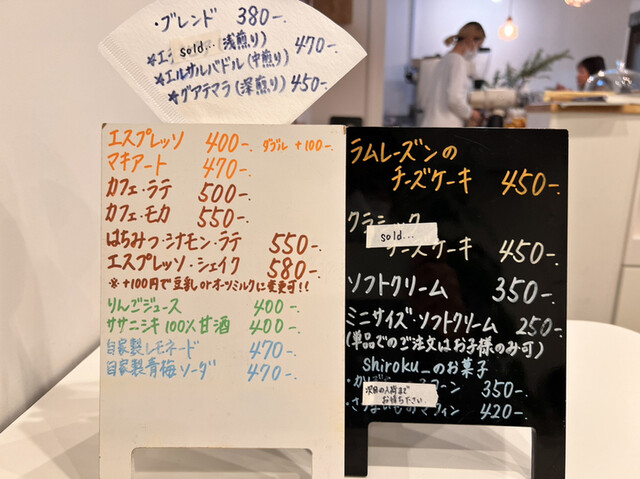 ・ブレンド 380-.
*エ sold... (浅煎り) 470-.
*エルサルバドル(中煎り)
*グアテマラ(深煎り) 450-.
エスプレッソ 400-. ダブル +100-.
マキアート 470-.
カフェ・ラテ 500-.
カフェ・モカ 550-.
はちみつ・シナモン・ラテ 550-.
エスプレッソ・シェイク 580-.
※+100円で豆乳orオーツミルクに変更可!!
りんごジュース 400-.
ササニシキ100%甘酒 400-.
自家製レモネード 470-.
自家製青梅ソーダ 470-.
ラムレーズンの
チーズケーキ 450-.
クラシック
sold...
ーズケーキ 450-.
ソフトクリーム 350-.
ミニサイズ・ソフトクリーム 250-.
(単品でのご注文はお子様のみ可)
shiroku_のお菓子
ーン 350-.
次回の入荷まで
お待ち下さい
フィン 420-.